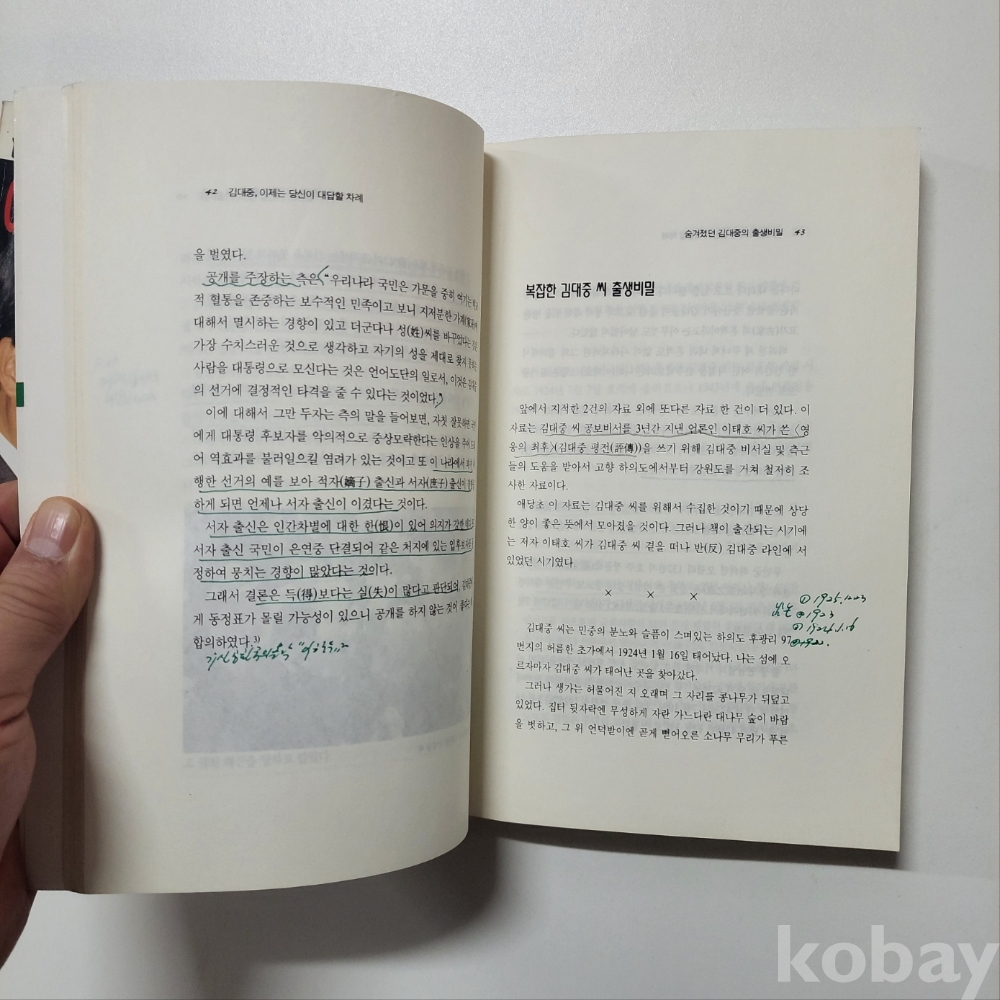 42 김대중, 이제는 당신이 대답할 차례
을 벌였다.
공개를 주장하는 측은 "우리나라 국민은 가문을 중히 여기는
적 혈통을 존중하는 보수적인 민족이고 보니 지저분한
대해서 멸시하는 경향이 있고 더군다나 성(姓)씨를 바꾸었다는
가장 수치스러운 것으로 생각하고 자기의 성을 제대로 찾지
사람을 대통령으로 모신다는 것은 언어도단의 일로서, 이것은
의 선거에 결정적인 타격을 줄 수 있다는 것이었다."
이에 대해서 그만 두자는 측의 말을 들어보면, 자칫 잘못하면
에게 대통령 후보자를 악의적으로 중상모략한다는 인상을 주어
어 역효과를 불러일으킬 염려가 있는 것이고 또 이 나라에서
행한 선거의 예를 보아 적자(嫡子) 출신과 서자(庶子) 출신이
하게 되면 언제나 서자 출신이 이겼다는 것이다.
서자 출신은 인간차별에 대한 한(恨)이 있어 의지가
서자 출신 국민이 은연중 단결되어 같은 처지에 있는
정하여 뭉치는 경향이 많았다는 것이다.
그래서 결론은 득(得)보다는 실(失)이 많다고 판단되어
게 동정표가 몰릴 가능성이 있으니 공개를 하지 않는 것이
합의하였다.3)
숨겨졌던 김대중의 출생비밀 43
복잡한 김대중 씨 출생비밀
앞에서 지적한 2건의 자료 외에 또다른 자료 한 건이 더 있다. 이
자료는 김대중 씨 공보비서를 3년간 지낸 언론인 이태호 씨가 쓴 〈영
웅의 최후〉(김대중 평전(評傳))을 쓰기 위해 김대중 비서실 및 측근
들의 도움을 받아서 고향 하의도에서부터 강원도를 거쳐 철저히 조
사한 자료이다.
애당초 이 자료는 김대중 씨를 위해서 수집한 것이기 때문에 상당
한 양이 좋은 뜻에서 모아졌을 것이다. 그러나 책이 출간되는 시기에
는 저자 이태호 씨가 김대중 씨 곁을 떠나 반(反) 김대중 라인에 서
있었던 시기였다.
× × ×
① 1925.12.03
② 1923
③ 1924.1.16
김대중 씨는 민중의 분노와 슬픔이 스며있는 하의도 후광리 97
번지의 허름한 초가에서 1924년 1월 16일 태어났다. 나는 섬에 오
르자마자 김대중 씨가 태어난 곳을 찾아갔다.
그러나 생가는 허물어진 지 오래며 그 자리를 콩나무가 뒤덮고
있었다. 집터 뒷자락엔 무성하게 자란 가느다란 대나무 숲이 바람
을 벗하고, 그 위 언덕받이엔 곧게 뻗어오른 소나무 무리가 푸른
kobay